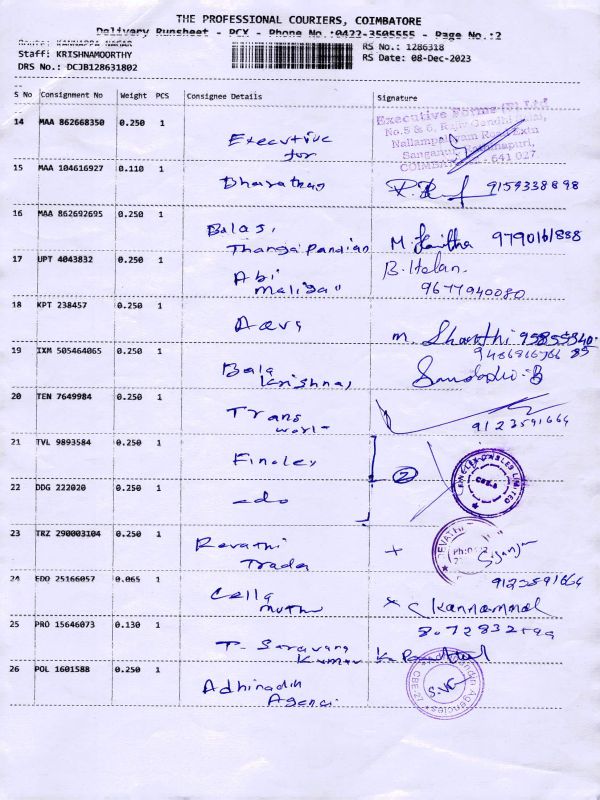 THE PROFESSIONAL COURIERS, COIMBATORE
Delivery Runsheet - PCX - Phone No.:0422-3505555 - Page No.:2
KANNAPPA NAGAR
Staff: KRISHNAMOORTHY
RS No.: 1286318
DRS No.: DCJB128631802
RS Date: 08-Dec-2023
S No Consignment No Weight PCS Consignee Details Signature
14 MAA 862668350 0.250 1 Executive
for
Executive Forms (P) Ltd
No.5 & 6, Rajiv Gandhi
Nallampalayam Road Extn
Sanganur,
COIMBATORE - 641 027
15 MAA 104616927 0.110 1 Bharathan 9159338898
16 MAA 862692695 0.250 1 Balaji
Thangapandian M. Haritha 9790161888
17 UPT 4043832 0.250 1 Abi B. Helan
9677940080
18 KPT 238457 0.250 1 m. Sharthi
9486916766
19 IXM 505464065 0.250 1 Bala
Krishnan
20 TEN 7649984 0.250 1 Trans
world
9123591664
21 TVL 9893584 0.250 1 Finolex
2
CABLES LIMITED
CBE-6
22 DDG 222020 0.250 1 do
23 TRZ 290003104 0.250 1 Revathi
Trader
24 EDO 25166057 0.065 1 Cella
muthu
9123591664
Kannammal
25 PRO 15646073 0.130 1 T. Saravana
Kumar
26 POL 1601588 0.250 1 Adhinadh
Agencies
CBE-27